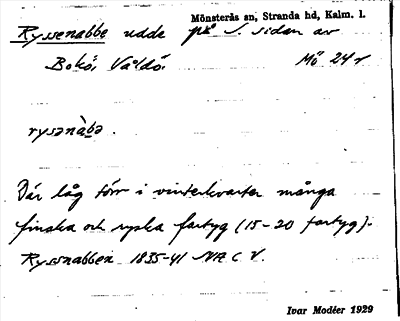 Mönsterås sn, Stranda hd, Kalm. l.
Ryssenabbe udde på S. sidan av
Bokö, Valdö. Mö 24 r
rysənàbə .
Där låg förr i vinterkvarter många
finska och ryska fartyg (15-20 fartyg).
Ryssnabben 1835-41 NAC V.
Ivar Modéer 1929